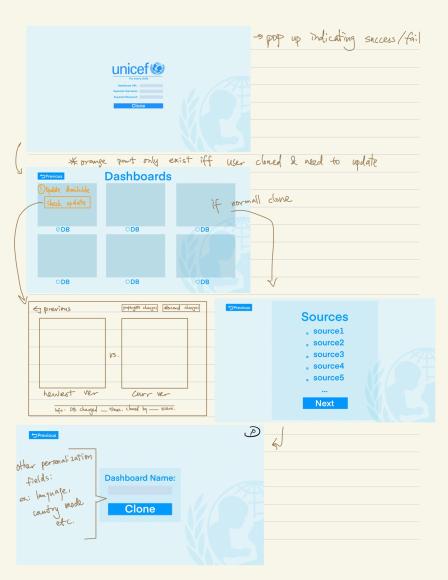 → pop up indicating success/fail
unicef
for every child
Dashboard URL:
Superset Username:
Superset Password:
Clone
* orange part only exist iff user cloned & need to update
Previous
Dashboards
! Update Available
check update
if normal clone
DB
DB
DB
DB
DB
DB
previous
propagate changes
discard changes
vs.
newest ver
curr ver
Info: DB changed __ times, cloned by __ users.
Previous
Sources
source1
source2
source3
source4
source5
...
Next
Previous
other personalization
fields:
ex: language,
country mode
etc.
Dashboard Name:
Clone